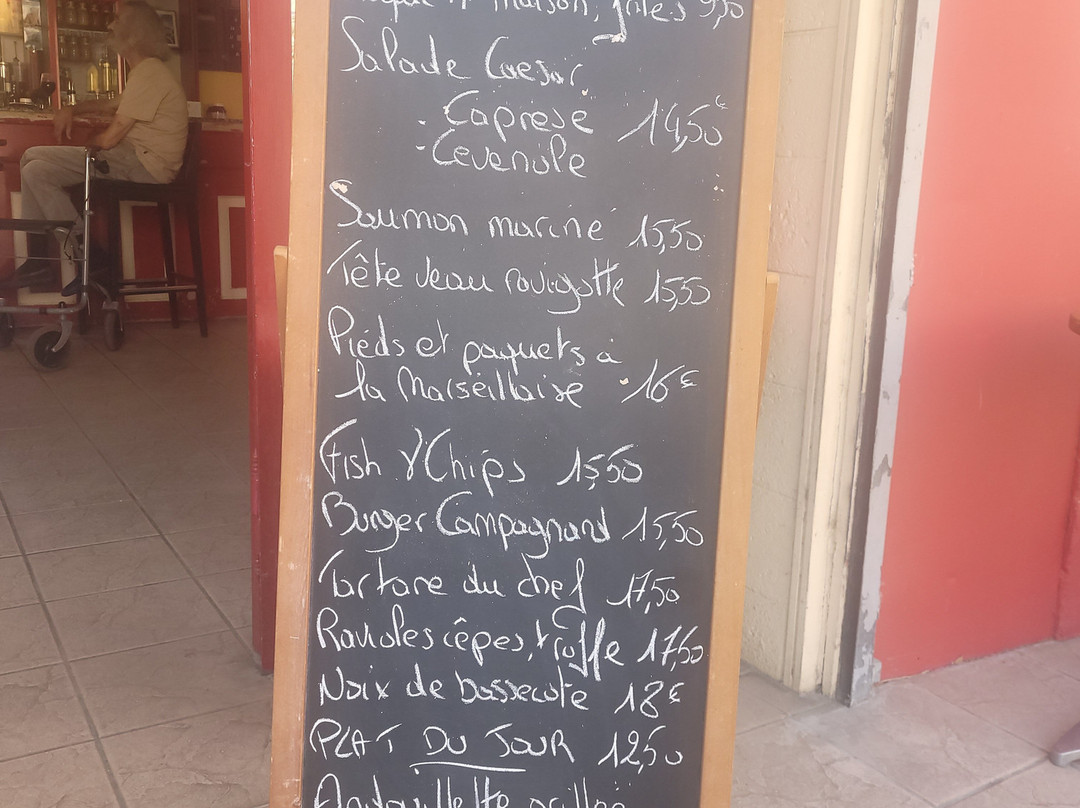 maison, frites 9,50
Salade Caesar
- Caprese 14,50€
- Cevenole
Saumon mariné 15,50
Tête veau ravigotte 15,50
Pieds et paquets à
la Marseillaise 16€
Fish & Chips 15,50
Burger Campagnard 15,50
Tartare du chef 17,50
Ravioles cêpes, truffe 17,50
Noix de bassecote 18€
PLAT DU JOUR 12,50
Andouillette grillée